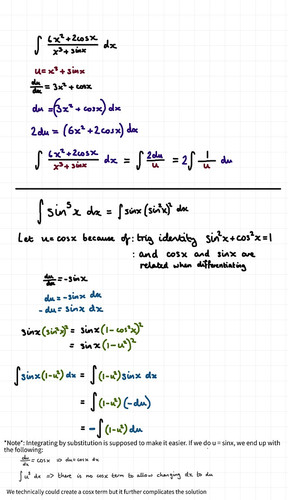 ∫ (6x² + 2cosx)/(x³ + sinx) dx
u = x³ + sinx
du/dx = 3x² + cosx
du = (3x² + cosx) dx
2du = (6x² + 2cosx) dx
∫ (6x² + 2cosx)/(x³ + sinx) dx = ∫ 2du/u = 2∫ 1/u du
∫ sin⁵x dx = ∫ sinx (sin²x)² dx
Let u = cosx because of : trig identity sin²x + cos²x = 1
: and cosx and sinx are
related when differentiating
du/dx = -sinx
du = -sinx dx
-du = sinx dx
sinx (sin²x)² = sinx (1-cos²x)²
= sinx (1-u²)²
∫ sinx (1-u²) dx = ∫ (1-u²) sinx dx
= ∫ (1-u²) (-du)
= -∫ (1-u²) du
*Note*: Integrating by substitution is supposed to make it easier. If we do u = sinx, we end up with
the following:
du/dx = cosx ⇒ du = cosx dx
∫ u⁵ dx ⇒ there is no cosx term to allow changing dx to du
We technically could create a cosx term but it further complicates the solution